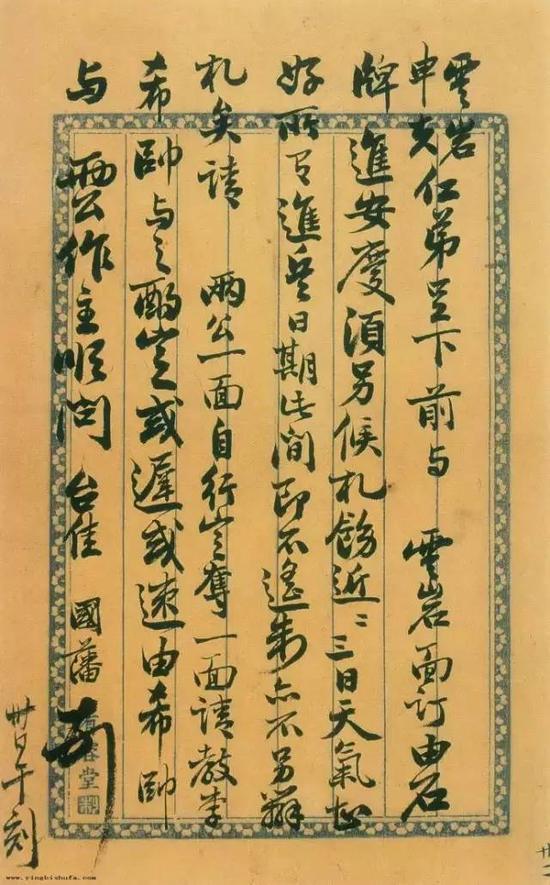 雲岩
申夫仁弟足下前与 雲岩面訂由石
牌進安慶須另候札飭近二三日天氣甚
好所有進兵日期此間即不遙制亦不另辦
札矣請 兩公一面自行定奪一面請教李
希帥与之酌定或遲或速由希帥
与 兩公作主順問 台佳 國藩
卅日午刻
www.yingbishufa.com